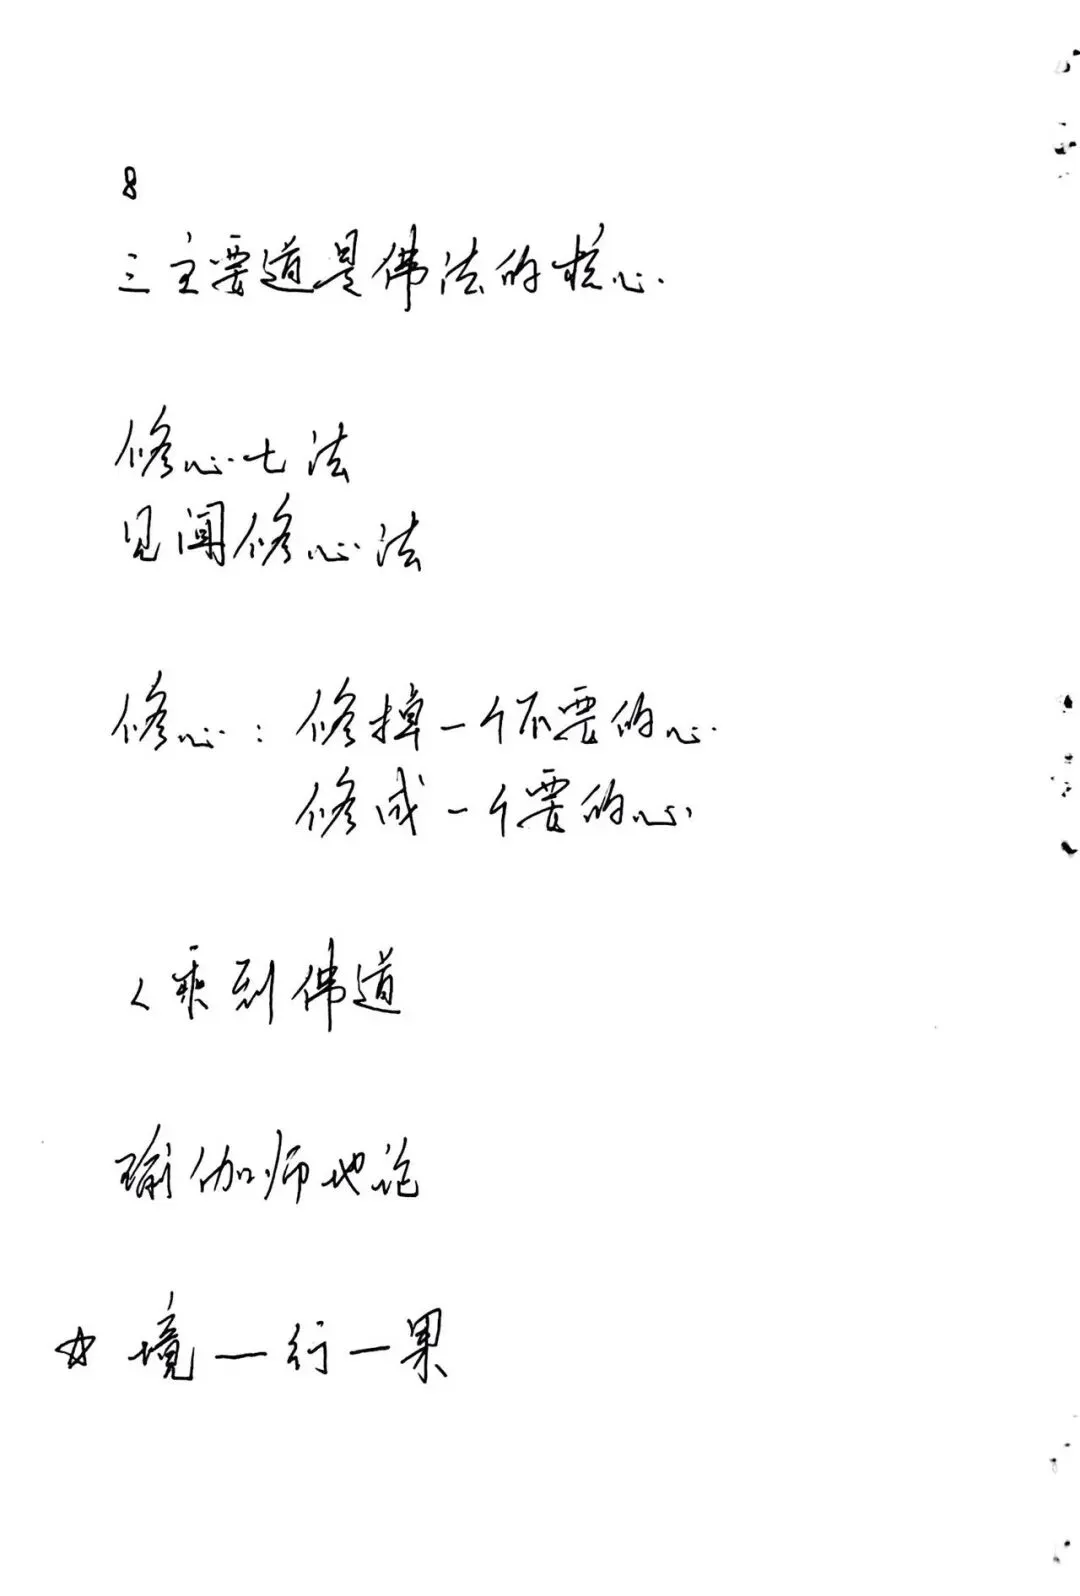 8
三主要道是佛法的核心.
修心七法
见闻修心法
修心: 修掉一个不要的心.
修成一个要的心
乘到佛道
瑜伽师地论
☆ 境—行—果